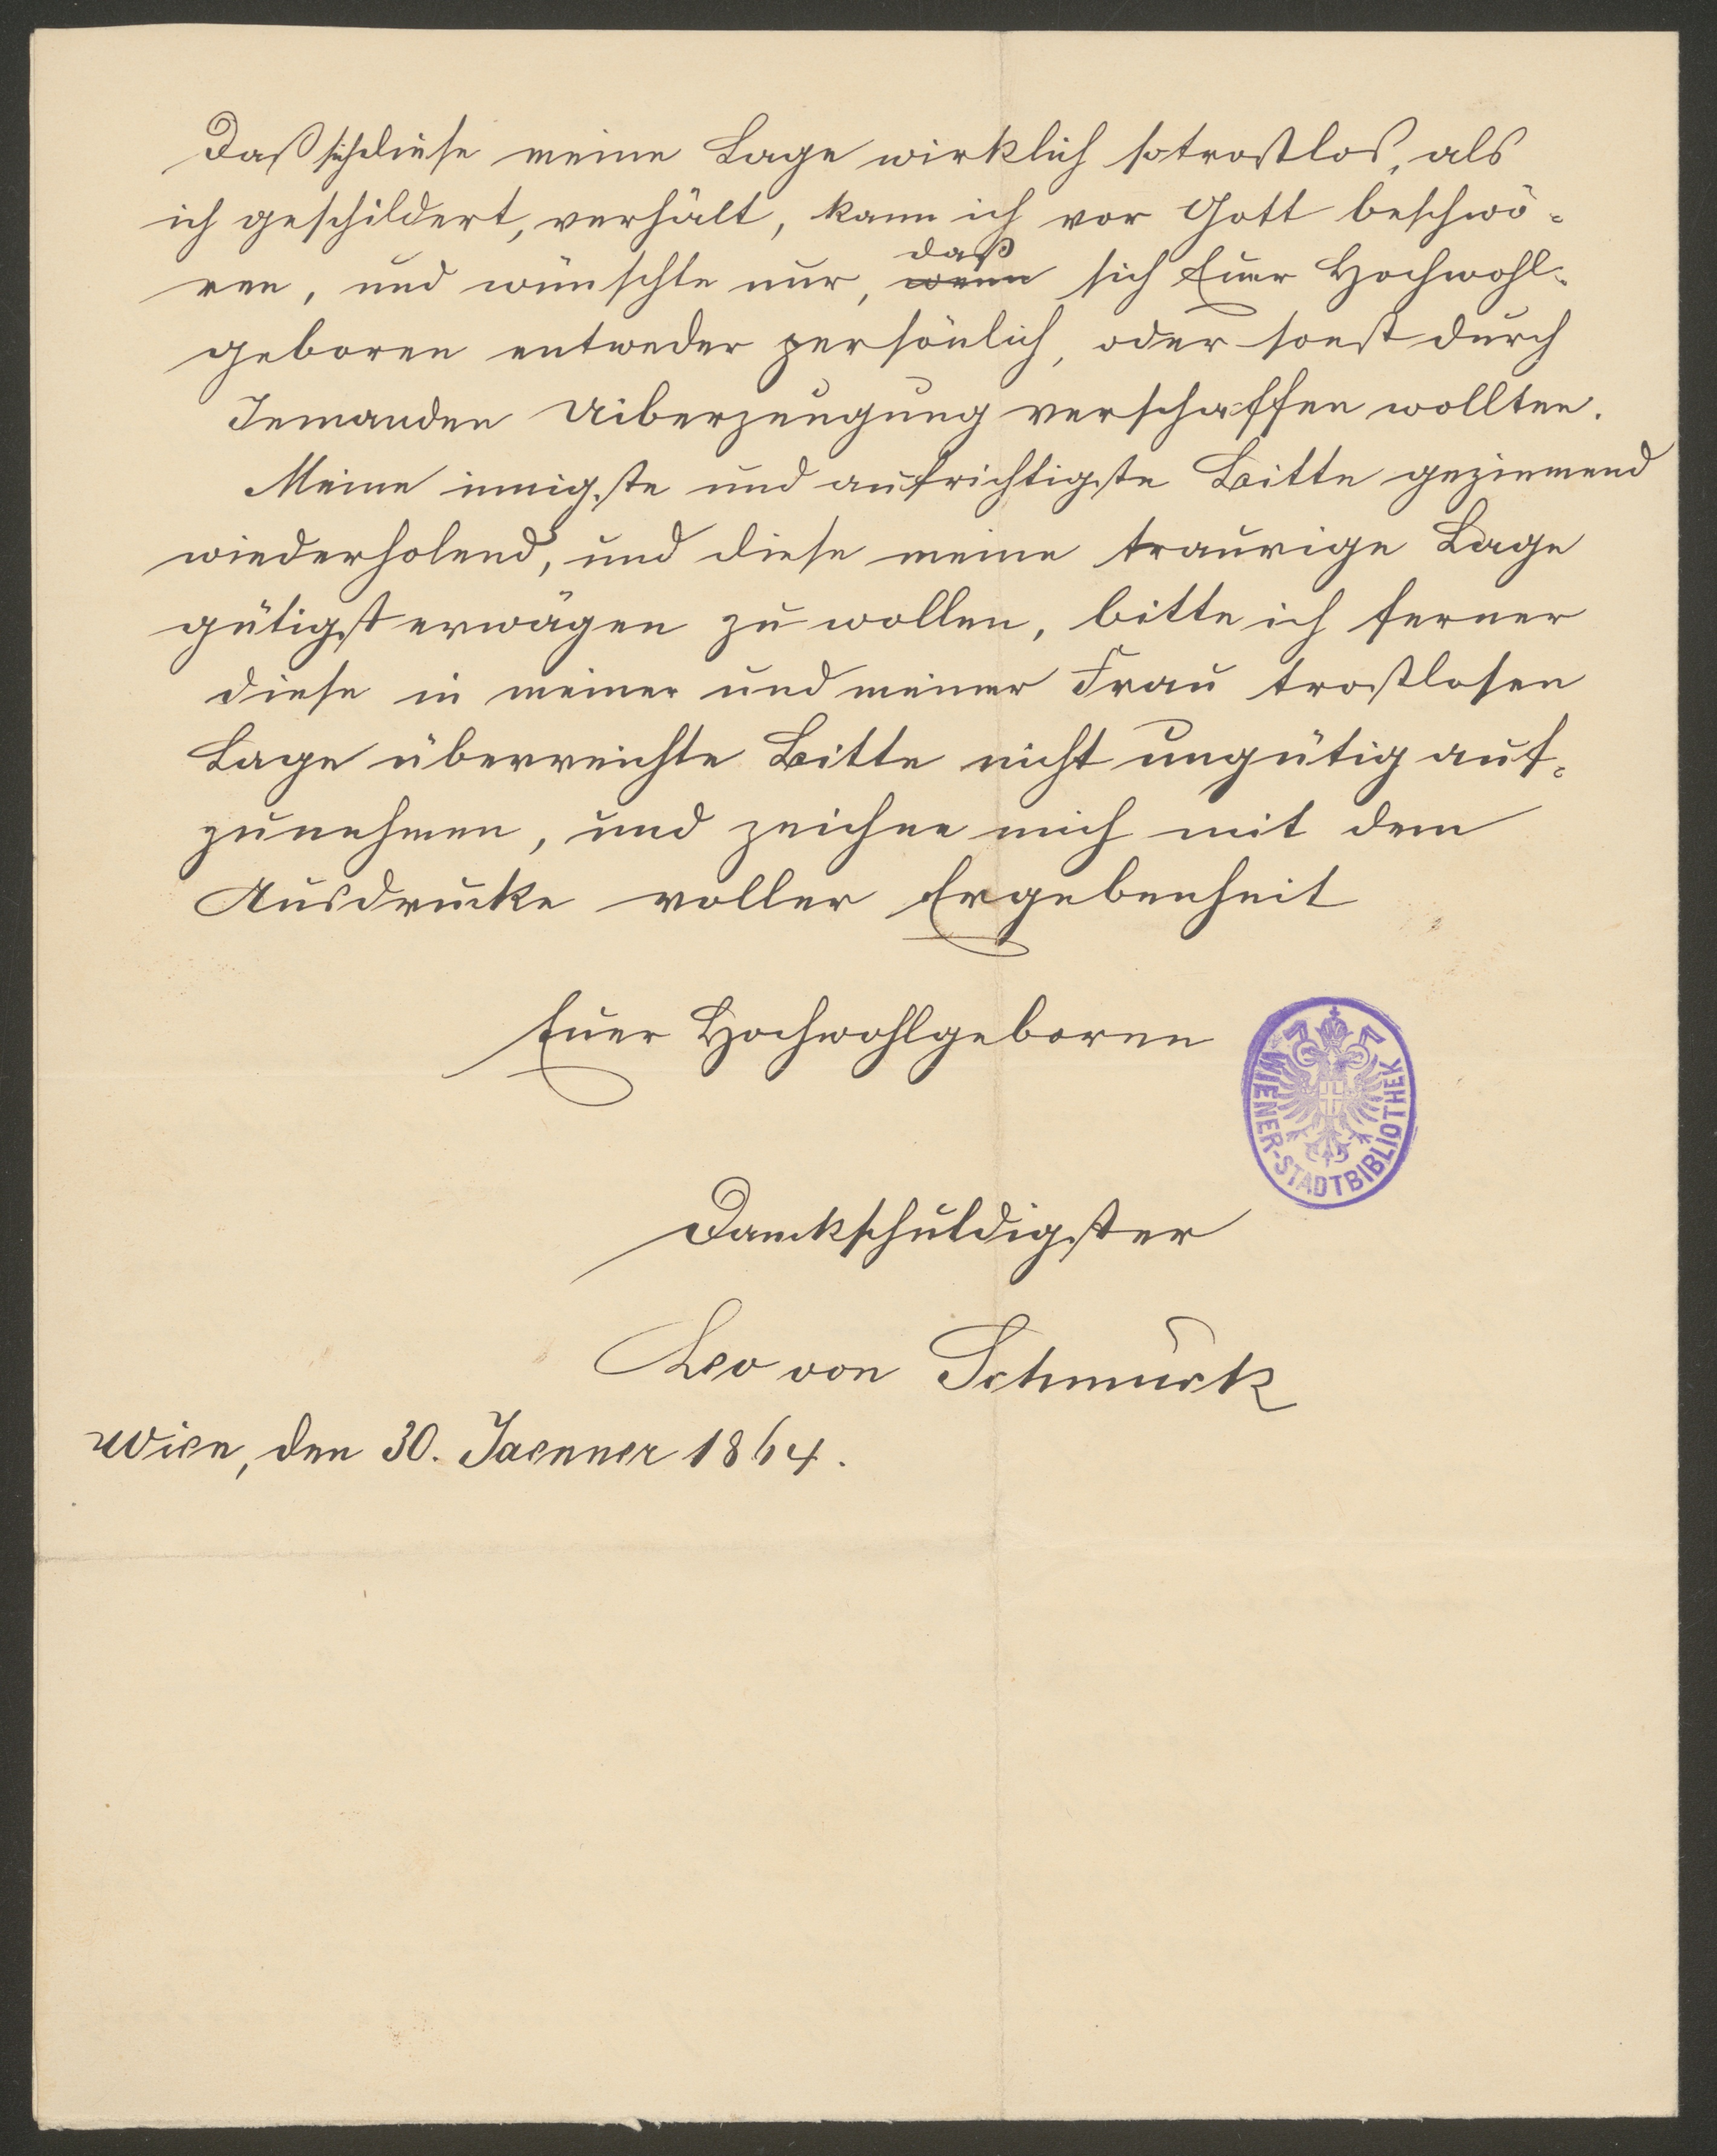 Daß sich diese meine Lage wirklich so trostlos, als
ich geschildert, verhält, kann ich vor Gott beschwö-
daß
ren, und wünschte nur, wenn sich Euer Hochwohl-
geboren entweder persönlich, oder sonst durch
Jemanden Uiberzeugung verschaffen wollten.
Meine innigste und aufrichtigste Bitte geziemend
wiederholend, und diese meine traurige Lage
gütigst erwägen zu wollen, bitte ich ferner
diese in meiner und meiner Frau trostlosen
Lage überreichte Bitte nicht ungütig auf-
zunehmen, und zeichne mich mit dem
Ausdrucke voller Ergebenheit
Euer Hochwohlgeboren
WIENER-STADTBIBLIOTHEK
Dankschuldigster
Leo von Schmuck
Wien, den 30. Jaenner 1864.